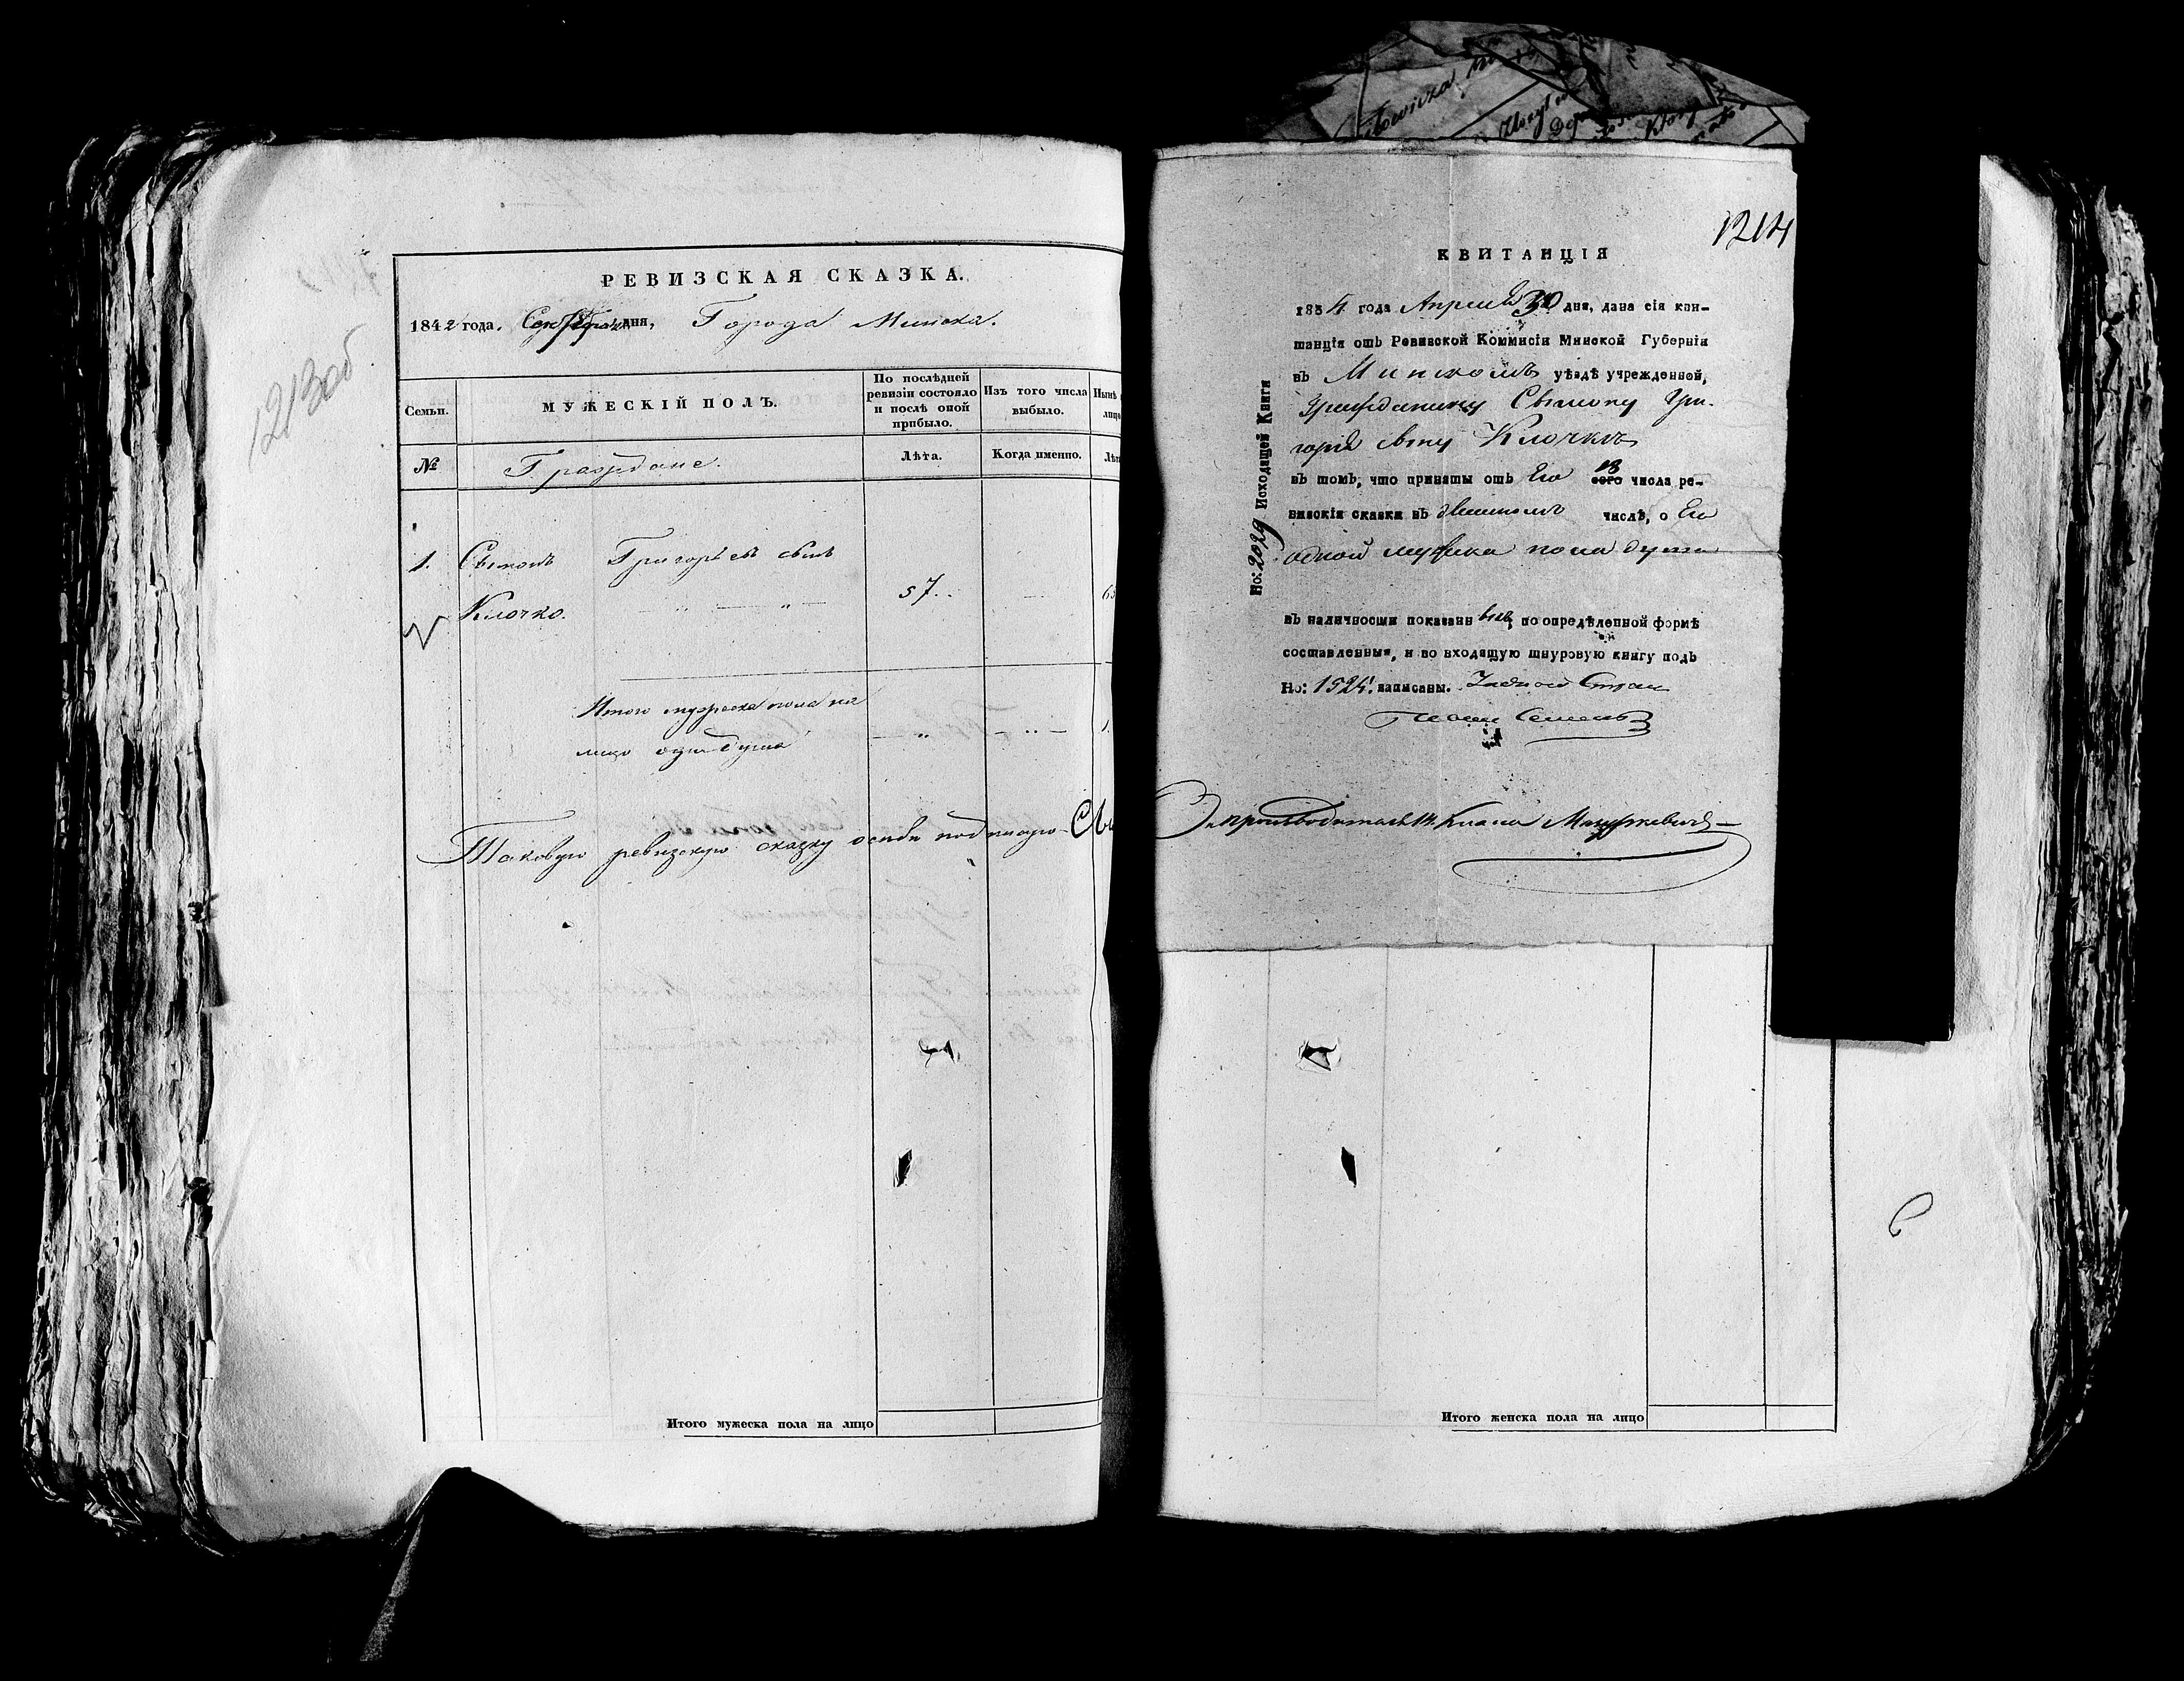 1213об.
РЕВИЗСКАЯ СКАЗКА.
1842 года, дня, Города Минска.
Семьи.
МУЖЕСКІЙ ПОЛЪ.
По послѣдней
ревизіи состояло
и послѣ оной
прибыло.
Изъ того числа
выбыло.
Нынѣ
лицо
№
Граждане.
Лѣта.
Когда именно.
Лѣт
1. Сымонъ Григорьевъ сынъ
Клочко. 57.
Итого мужеска пола на
лицо одна душа 1.
Таковую ревизскую сказку подписую
Итого мужеска пола на лицо
1214
КВИТАНЦІЯ
1834 года Апреля 30 дня, дана сія кви-
танція отъ Ревизской Коммисіи Минской Губерніи
въ Минскомъ уѣздѣ учрежденной,
Гражданину Сымону Гри-
Клочкѣ
въ томъ, что приняты отъ Его 13 сего числа ре-
визскія сказки въ числѣ, о Его
одной мужска пола души
въ наличности показан по опредѣленной формѣ
составленныя, и во входящую шнуровую книгу подъ
No: написаны.
No: 2029 Исходящей Книги
14 Класа Мацкевичъ
Итого женска пола на лицо